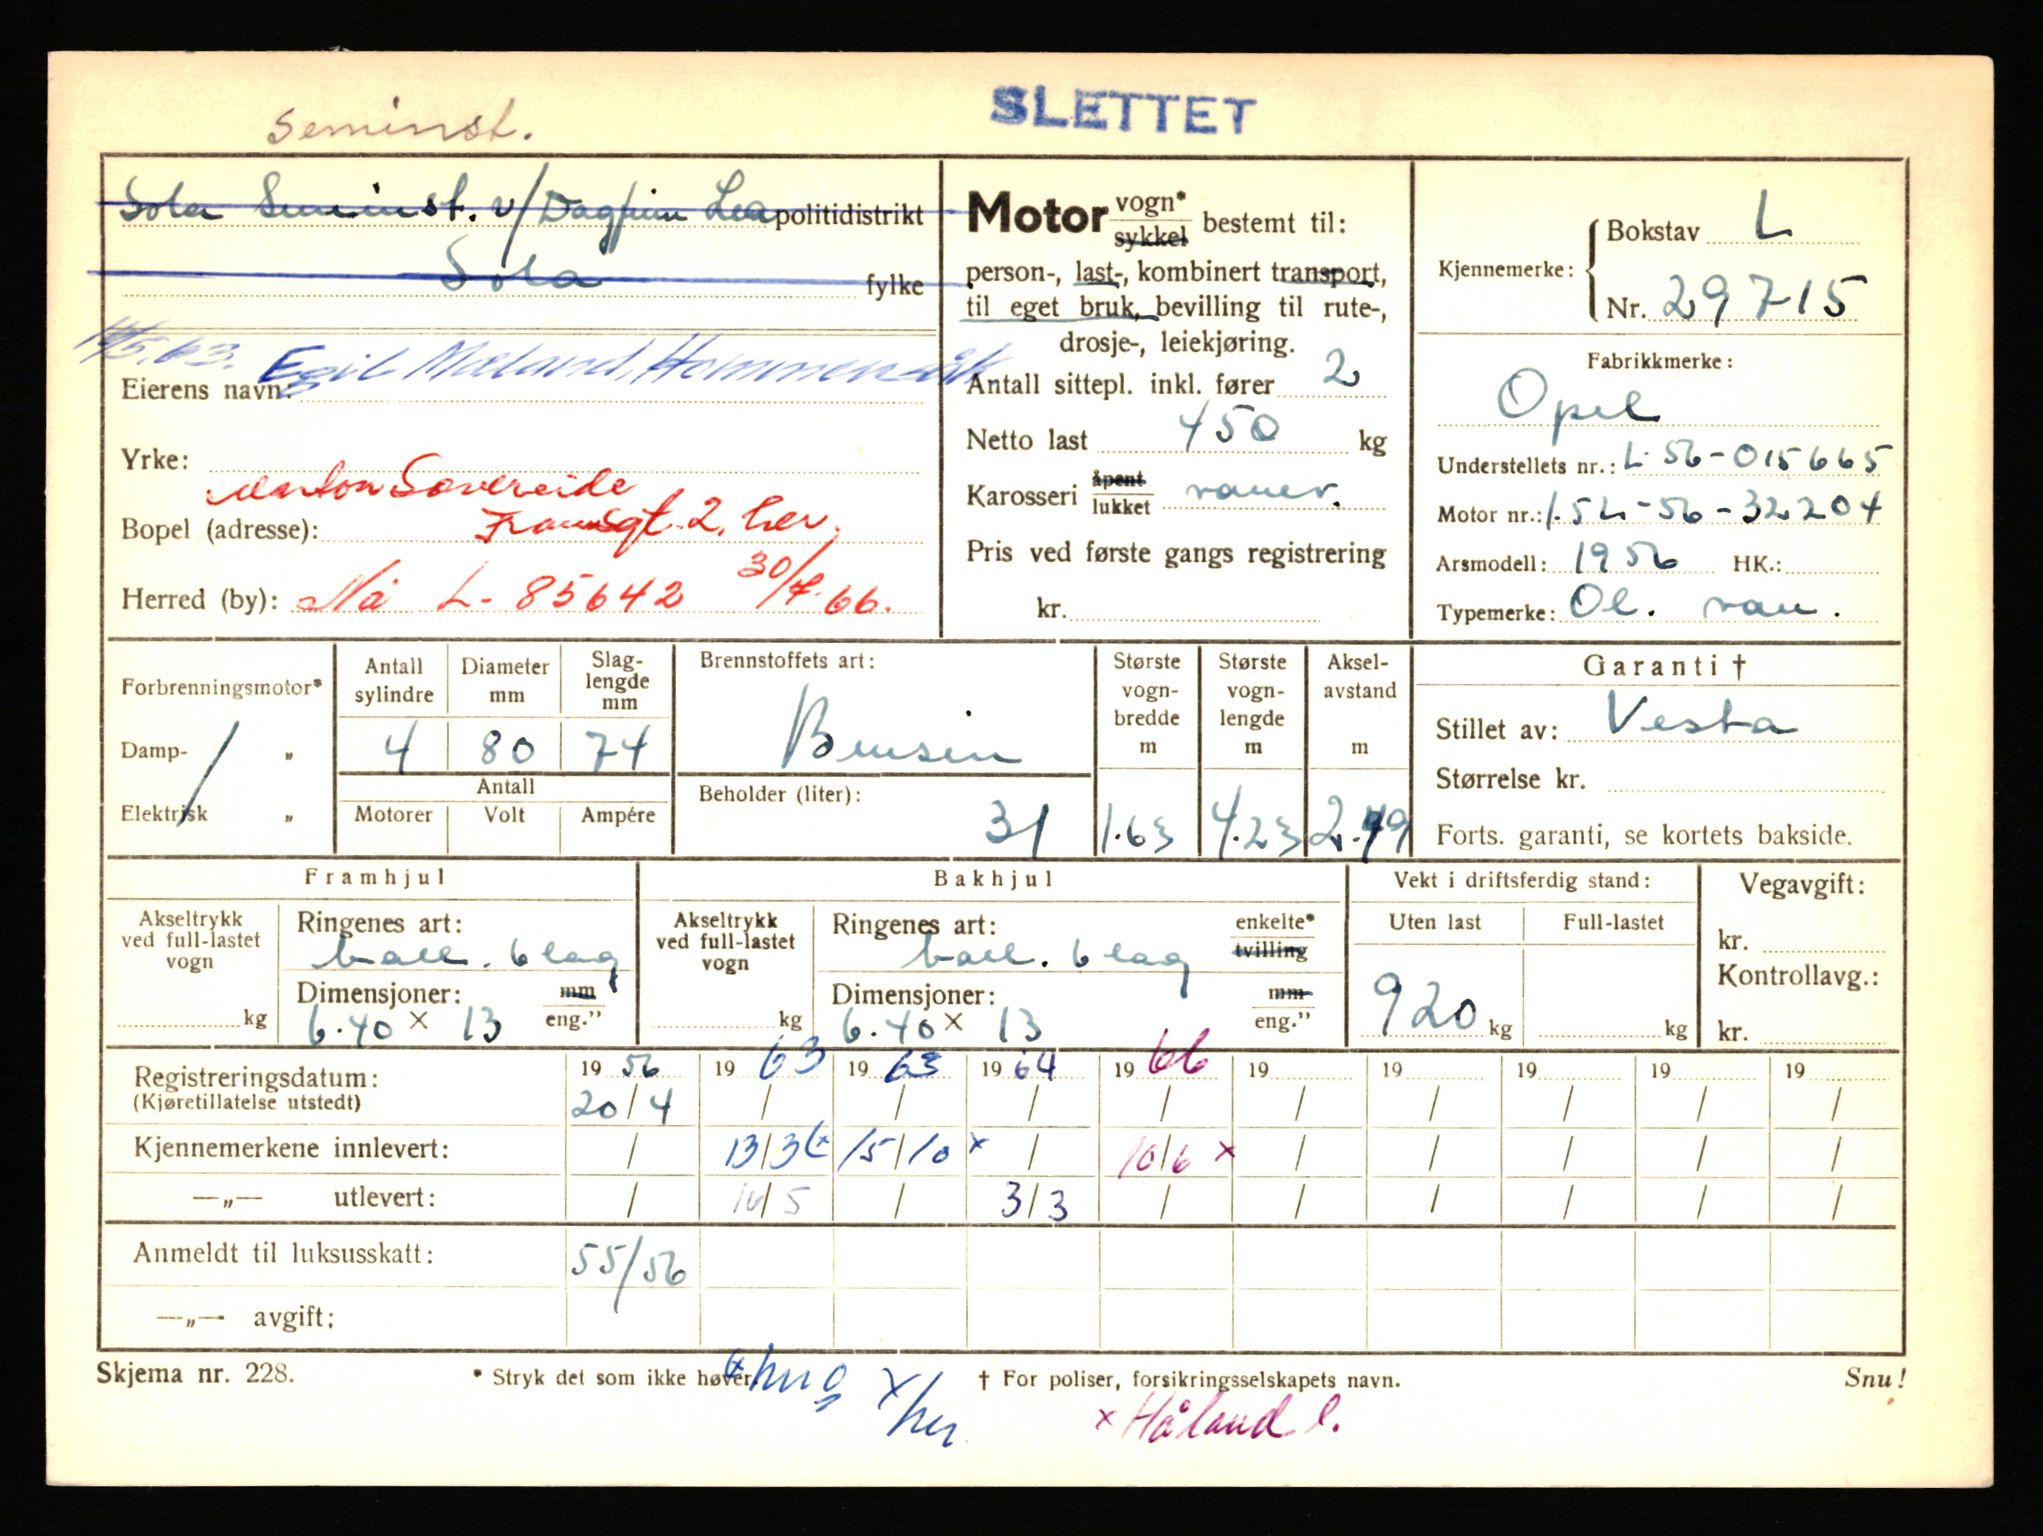 Seminst.
SLETTET
Sola Seminst. v/Dagfinn Lea politidistrikt
Sola fylke
Eierens navn: Egil Mæland, Hommersåk
Yrke:
Marton Sævereide
Bopel (adresse): Framsgt 2, her.
Herred (by): Nå L- 85642 30/4-66.
Motor vogn* sykkel bestemt til:
person-, last-, kombinert transport,
til eget bruk, bevilling til rute-,
drosje-, leiekjøring.
Antall sittepl. inkl. fører 2
Netto last 450 kg
Karosseri åpent lukket varev.
Pris ved første gangs registrering
kr.
Kjennemerke: Bokstav L
Nr. 29715
Fabrikkmerke:
Opel
Understellets nr.: L-56-015665
Motor nr.: 1.5L-56-32204
Årsmodell: 1956 HK.:
Typemerke: Ol. van.
Forbrenningsmotor*
Damp- „
Elektrisk „
Antall sylindre Diameter mm Slaglengde mm
4 80 74
Antall
Motorer Volt Ampére
Brennstoffets art:
Bensin
Beholder (liter):
31
Største vogn-bredde m Største vogn-lengde m Aksel-avstand m
1.63 4.23 2.49
Garanti †
Stillet av: Vesta
Størrelse kr.
Forts. garanti, se kortets bakside.
Framhjul
Akseltrykk ved full-lastet vogn
kg
Ringenes art:
ball. 6 lag
Dimensjoner: mm
6.40 x 13 eng."
Bakhjul
Akseltrykk ved full-lastet vogn
kg
Ringenes art: enkelte*
ball. 6 lag tvilling
Dimensjoner: mm
6.40 x 13 eng."
Vekt i driftsferdig stand:
Uten last Full-lastet
920 kg kg
Vegavgift:
kr.
Kontrollavg.:
kr.
Registreringsdatum: 19 56 19 63 19 63 19 64 19 66 19 19 19 19 19
(Kjøretillatelse utstedt) 20/4 / / / / / / / / /
Kjennemerkene innlevert: / 13/3 (x 15/10 x / 10/6 x / / / / /
—„— utlevert: / 14/5 / 3/3 / / / / / /
Anmeldt til luksusskatt: 55/56
—„— avgift:
Skjema nr. 228. * Stryk det som ikke høver. † For poliser, forsikringsselskapets navn. Snu!
x her
x Håland l.